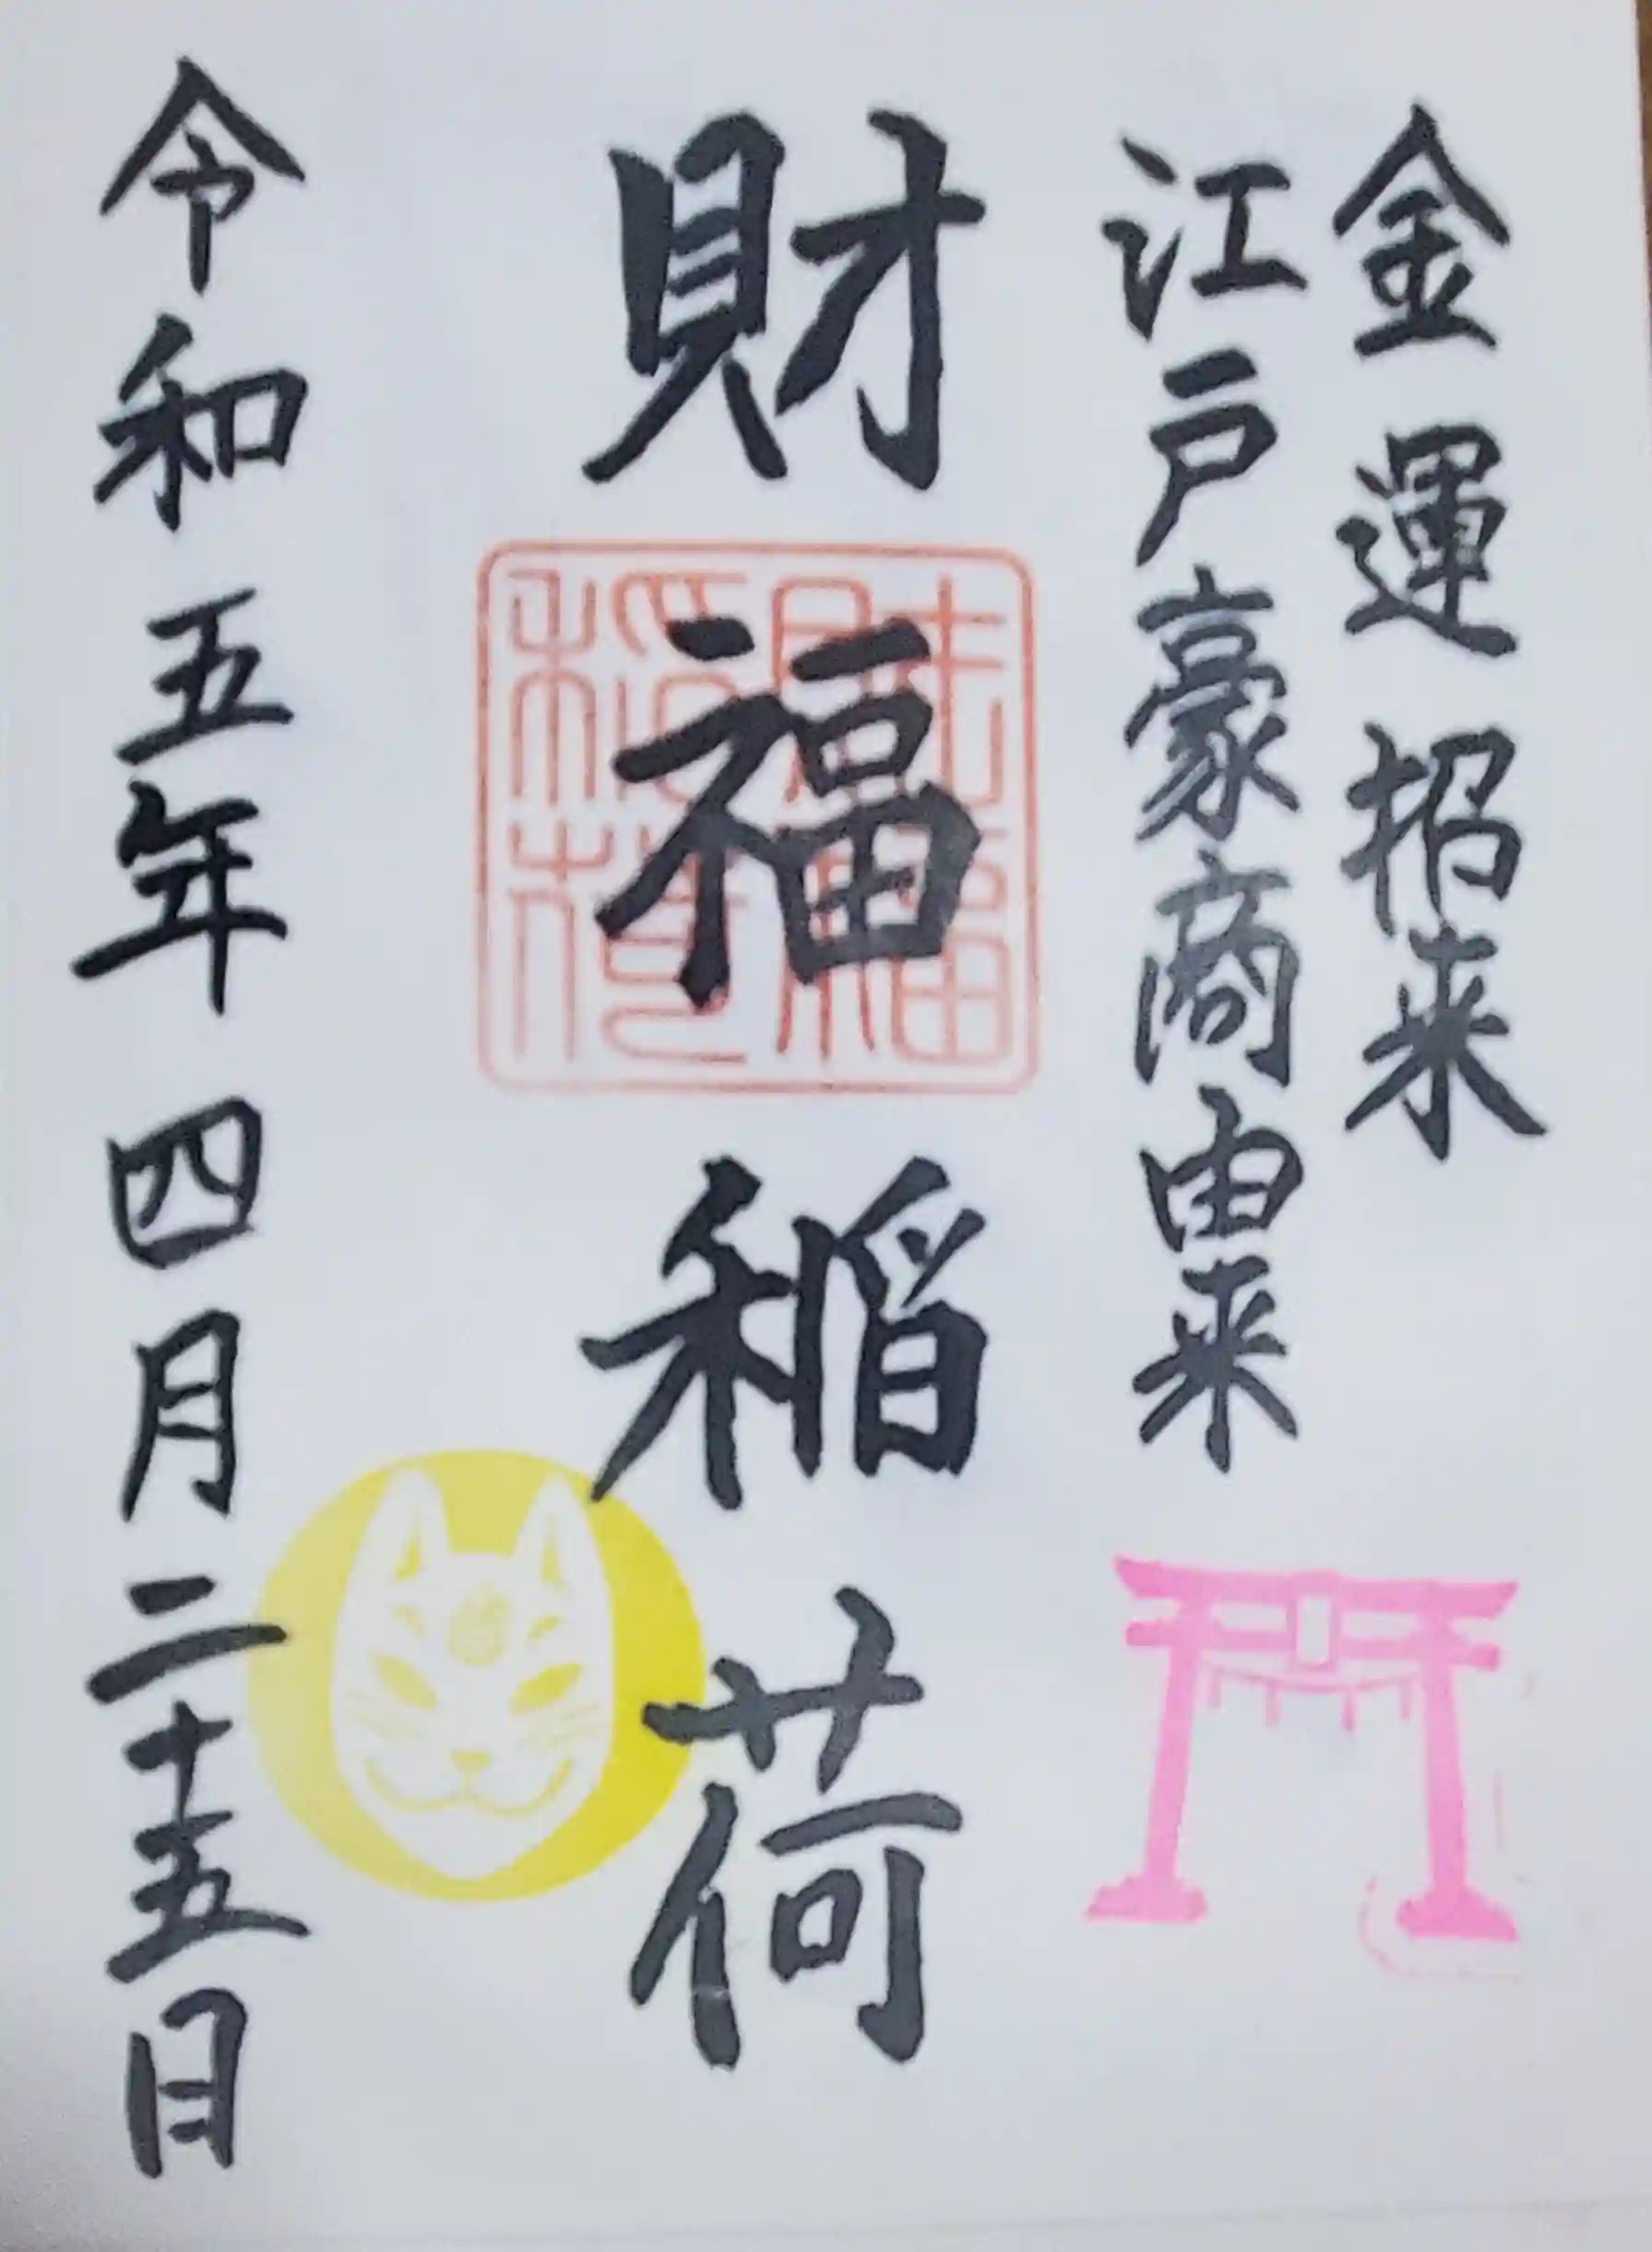 金運招来
江戸豪商由来
財福稲荷
財福稲荷
令和五年四月二十五日